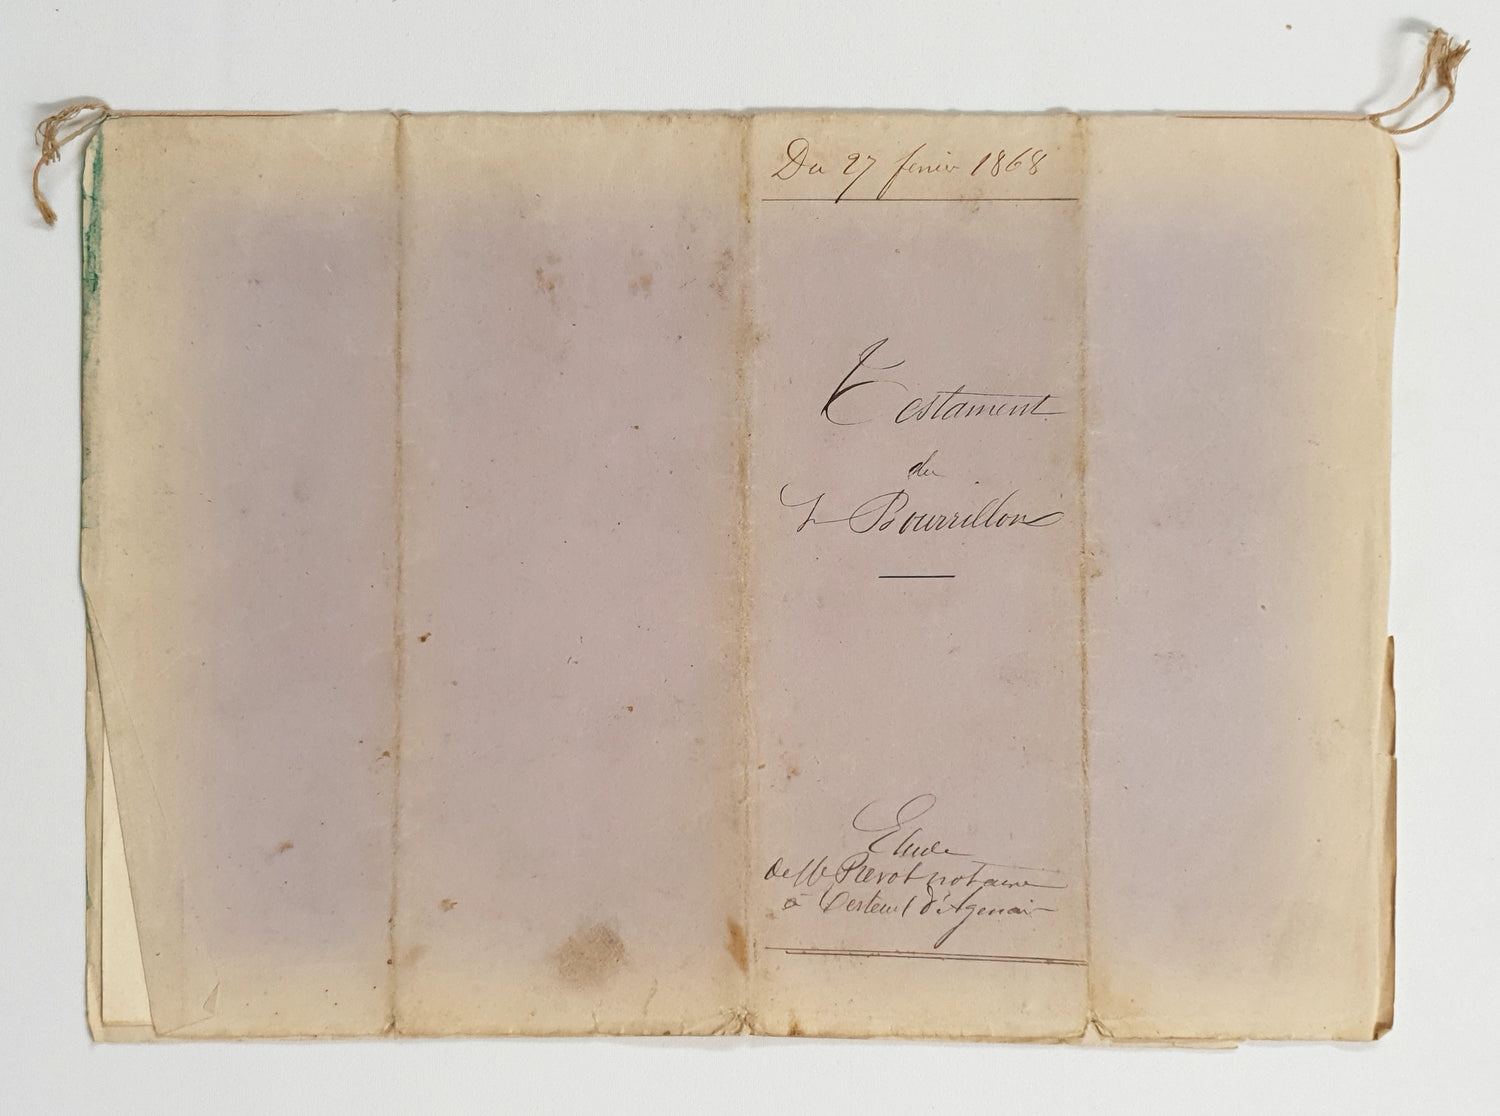 Du 27 fevrier 1868
Testament
du
Sr Bourrillon
Etude
de Me Prevot notaire
à d'Agenais